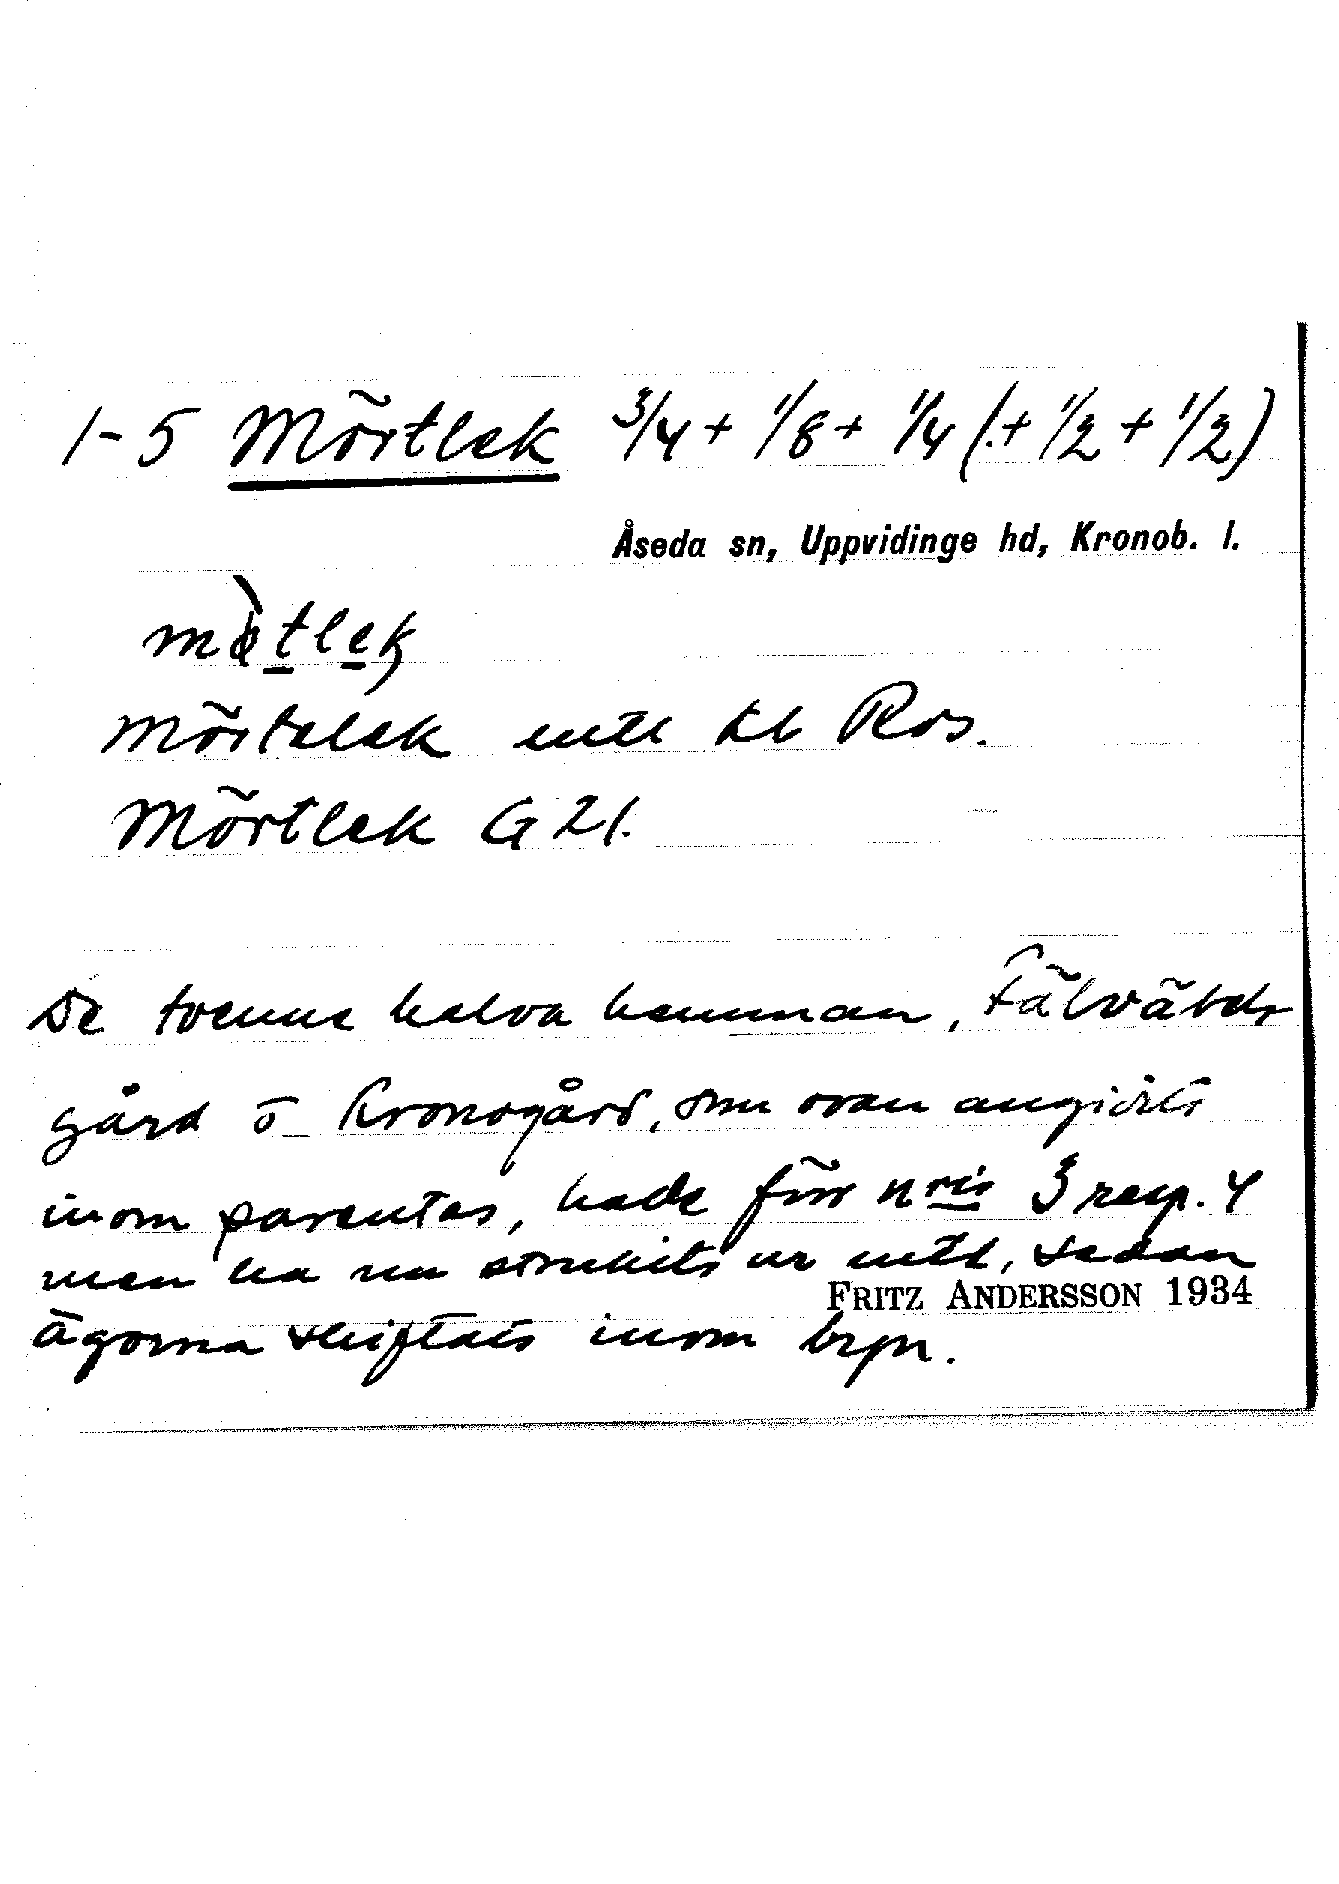 1-5 Mörtlek 3/4 + 1/8 + 1/4 (+ 1/2 + 1/2)
Åseda sn, Uppvidinge hd, Kronob. l.
Mörtelek enl
Mörtlek G 21.
De tvenne halva hemman,
gård o Kronogård, som ovan angivits
inom parentes, hade förr nris 3 resp. 4
men ha nu strukits ur mtl, sedan
FRITZ ANDERSSON 1934
ägorna skiftats inom byn.